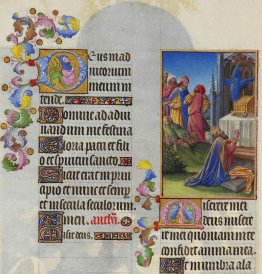 Deus in ad
iutorium
meum in
tende.
Domine ad adiu
uandum me festina
Gloria patri et fili
o et spiritui sancto.
Sicut erat in prin
cipio et nunc et semper
et in secula seculorum
Amen.
Miserere mei
deus misere
re mei quoniam in te
confidit anima mea.
Et in umbra ala